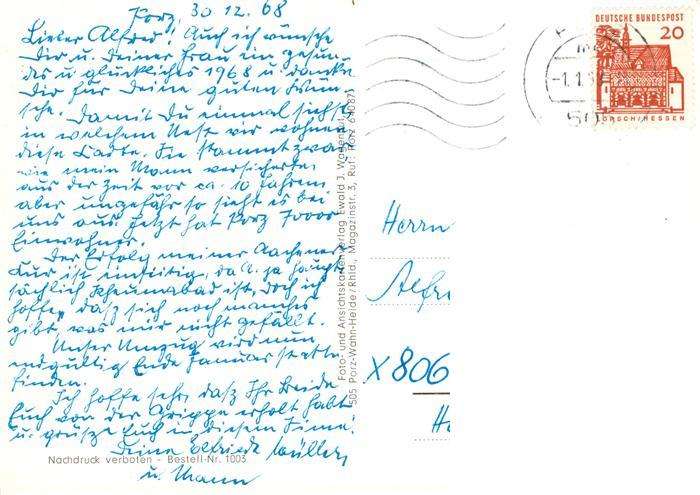 Porz, 30.12.68
Lieber Alfred! Auch ich wünsche
Dir u. Deiner Frau ein gesun-
des u. glückliches 1968 u. danke
Dir für Deine guten Wün-
sche. Damit Du einmal siehst
in welchem Nest wir wohnen
diese Karte. Sie stammt zwar
wie mein Mann versicherte,
aus der Zeit vor ca. 10 Jahren,
aber ungefähr so sieht es bei
uns aus. Jetzt hat Porz 70000
Einwohner.
Der Erfolg meiner Aachener
Kur ist, da A. ja haupt-
sächlich Rheumabad ist. Doch ich
hoffe, daß sich noch manches
gibt, was mir nicht gefällt.
Unser Umzug wird nun
endgültig Ende Januar statt-
finden.
Ich hoffe sehr, daß Ihr Beide
Euch von der Grippe erholt habt
u. grüsze Euch in diesem Sinne!
Deine Elfriede Müller,
u. Mann
Nachdruck verboten - Bestell-Nr. 1003
Foto- und Ansichtskartenverlag Ewald J.
505 Porz-Wahn-Heide/Rhld., Magazinstr. 3, Ruf: Porz 64087
DEUTSCHE BUNDESPOST
20
LORSCH/HESSEN
-1.1.
50
Herrn
Alfre
X 806